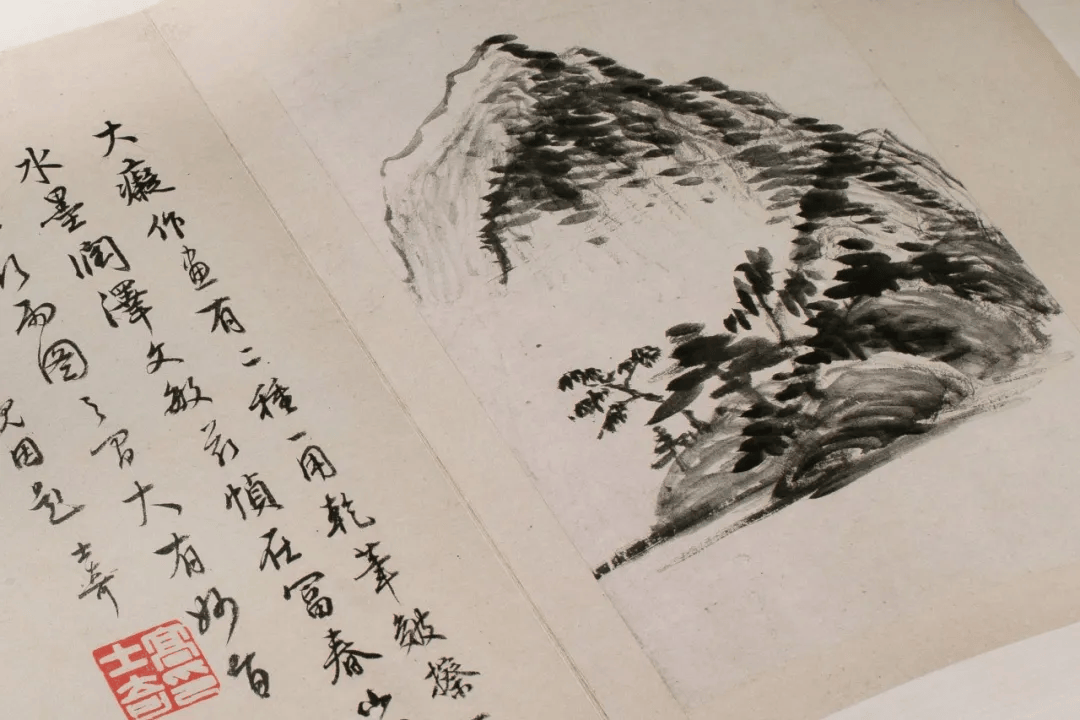 大癡作畫有二種一用乾筆皴擦
水墨潤澤文敏前幀在富春山
兩圖之間大有妙
因題士奇
士奇